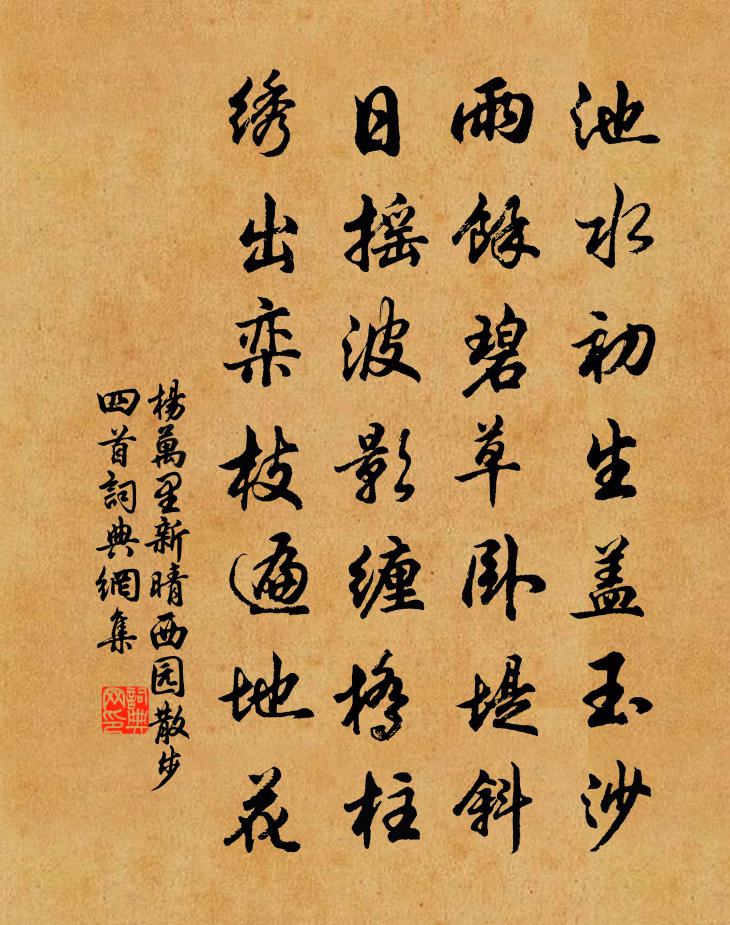 池水初生盖玉沙
雨餘碧草卧堤斜
日摇波影缠橋柱
绣出栾枝遍地花
楊萬里新晴西园散步
四首詞典網集
詞典
网印